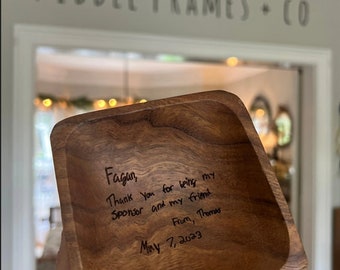 PEBBLE FRAMES + CO
Fagan,
Thank you for being my
sponsor and my friend
From, Thomas
May 7, 2023